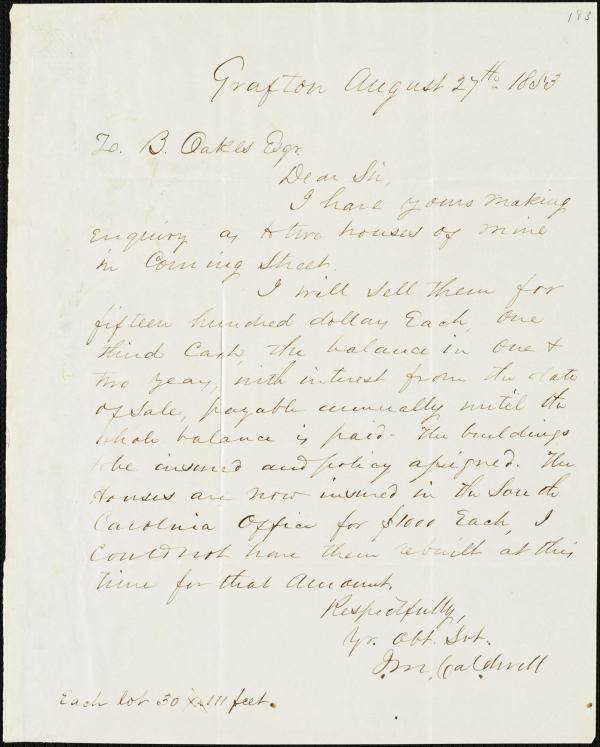 183
Grafton August 27th 1853
To. B. Oakes Esqr.
Dear Sir,
I have yours making
enquiry as to two houses of mine
in Coming Street.
I will sell them for
fifteen hundred dollars Each, One
third Cash, the balance in One &
two years, with interest from the date
of sale, payable annually until the
whole balance is paid - The buildings
to be insured and policy assigned. The
Houses are now insured in the South
Carolina Office for $1000 Each, I
Could not have them rebuilt at this
time for that Amount.
Respectfully,
Yr. Obt. Svt.
Jm. Caldwell
Each lot 30 x 111 feet.